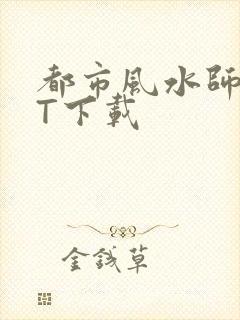 都市風水師
T下載
金錢草